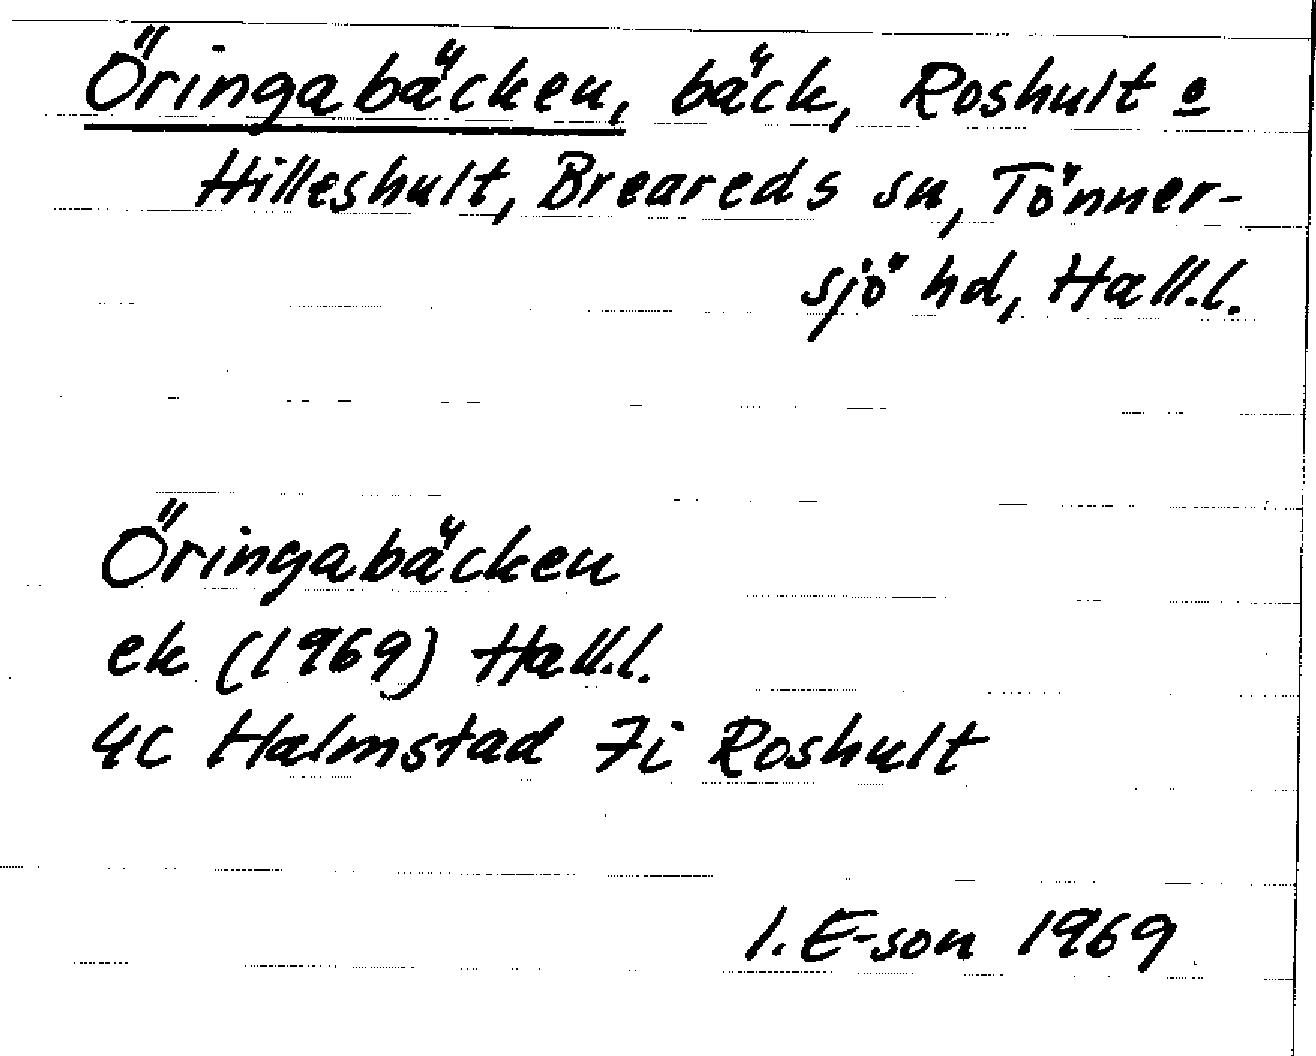 Öringabäcken, bäck, Roshult o
Hilleshult, Breareds sn, Tönner-
sjö hd, Hall.l.
Öringabäcken
ek (1969) Hall.l.
4C Halmstad 7i Roshult
I. E-son 1969